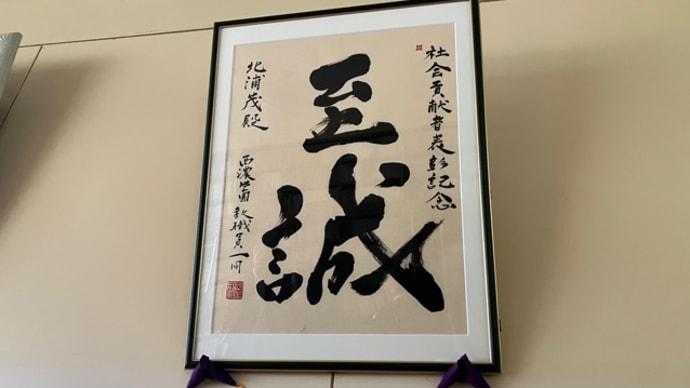 社会貢献者表彰記念
至誠
北浦茂殿
西濃学園教職員一同